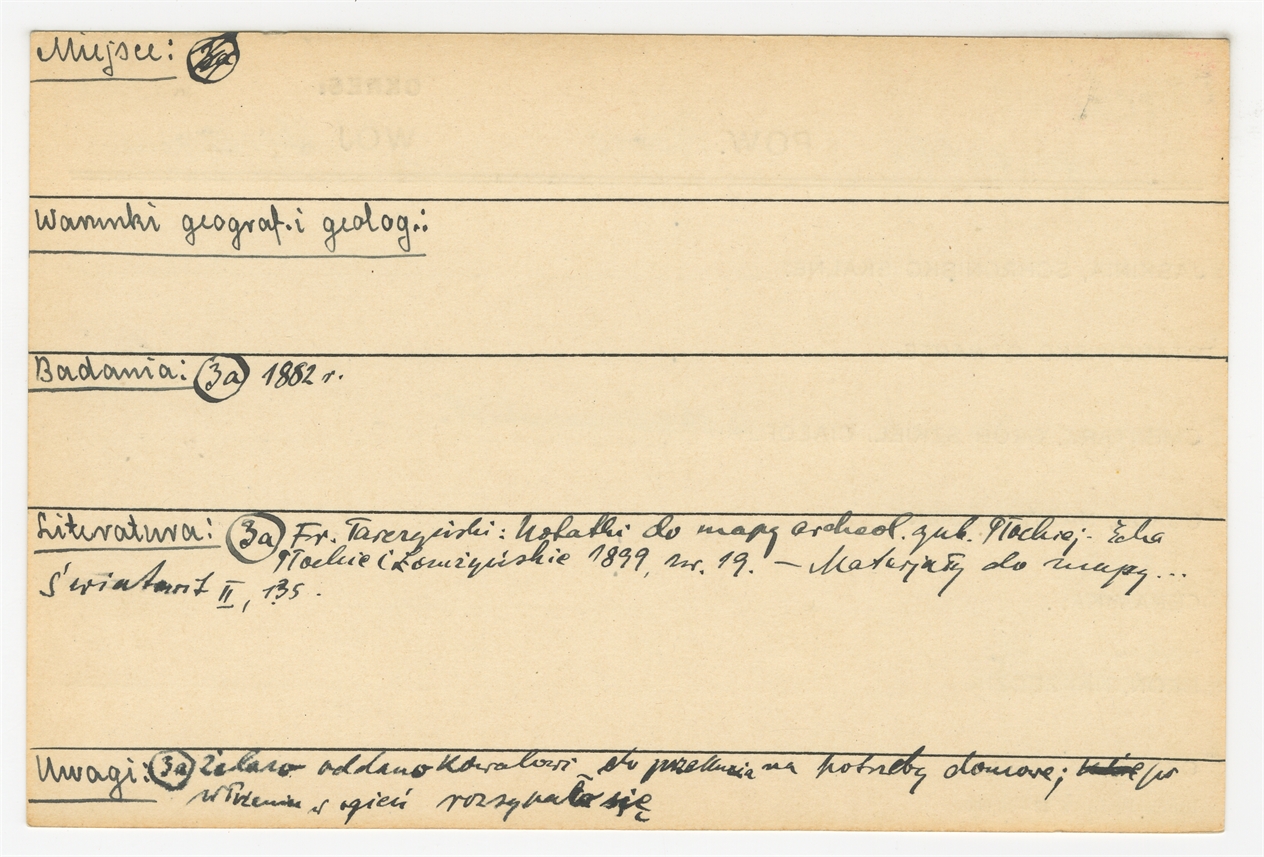 Miejsce:
Warunki geograf. i geolog.:
Badania: 3a 1882 r.
Literatura: 3a Fr. Tarczyński: Notatki do mapy archeol. gub. Płockiej. Echa
Płockie i Łomżyńskie 1899, nr. 19. – Materjały do mapy...
Światowit II, 135.
Uwagi: 3a Żelazo oddano kowalowi do przekucia na potrzeby domowe; po
włożeniu w ogień rozsypało się
OKRES:
POW. WOJ.